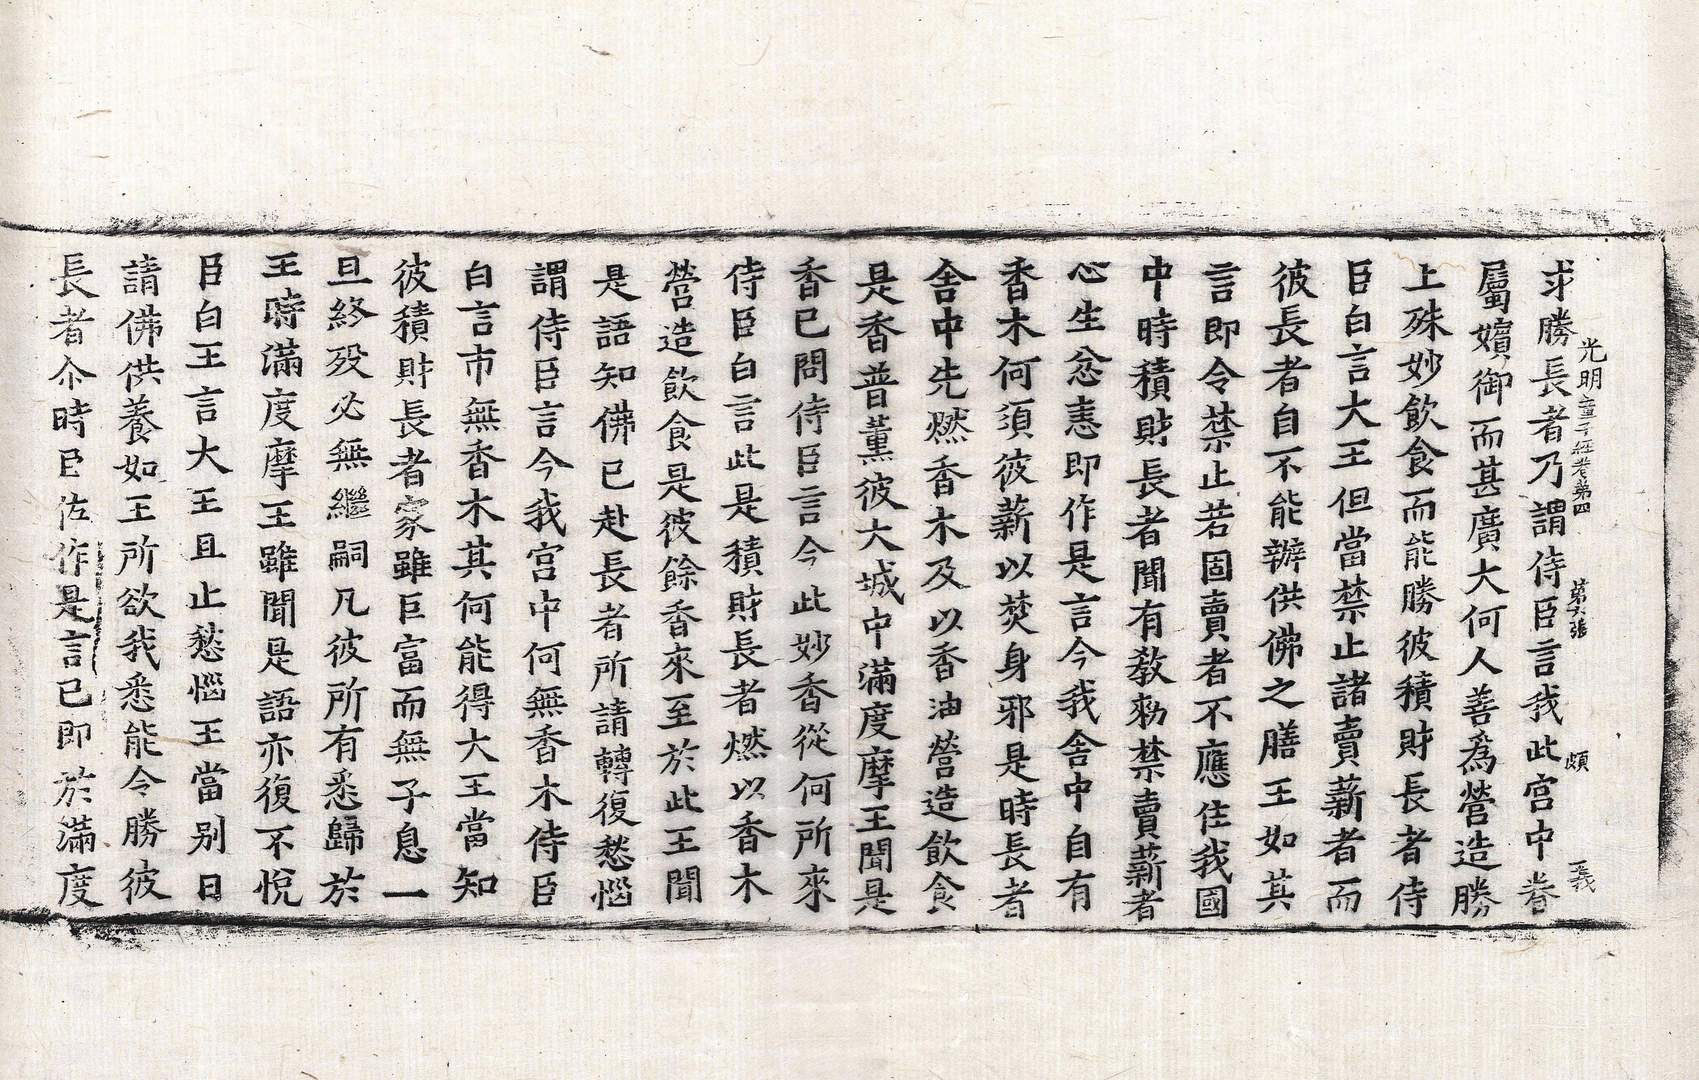 光明童子經卷第四 第六張 頗 一義
求勝長者乃謂侍臣言我此宮中眷
屬嬪御而甚廣大何人善為營造勝
上殊妙飲食而能勝彼積財長者侍
臣白言大王但當禁止諸賣薪者而
彼長者自不能辦供佛之膳王如其
言即令禁止若固賣者不應住我國
中時積財長者聞有教勑禁賣薪者
心生忿恚即作是言今我舍中自有
香木何須彼薪以焚身邪是時長者
舍中先燃香木及以香油營造飲食
是香普薰彼大城中滿度摩王聞是
香已問侍臣言今此妙香從何所來
侍臣白言此是積財長者燃以香木
營造飲食是彼餘香來至於此王聞
是語知佛已赴長者所請轉復愁惱
謂侍臣言今我宮中何無香木侍臣
白言市無香木其何能得大王當知
彼積財長者家雖巨富而無子息一
旦終歿必無繼嗣凡彼所有悉歸於
王時滿度摩王雖聞是語亦復不悅
臣白王言大王且止愁惱王當別日
請佛供養如王所欲我悉能令勝彼
長者尒時臣佐作是言已即於滿度